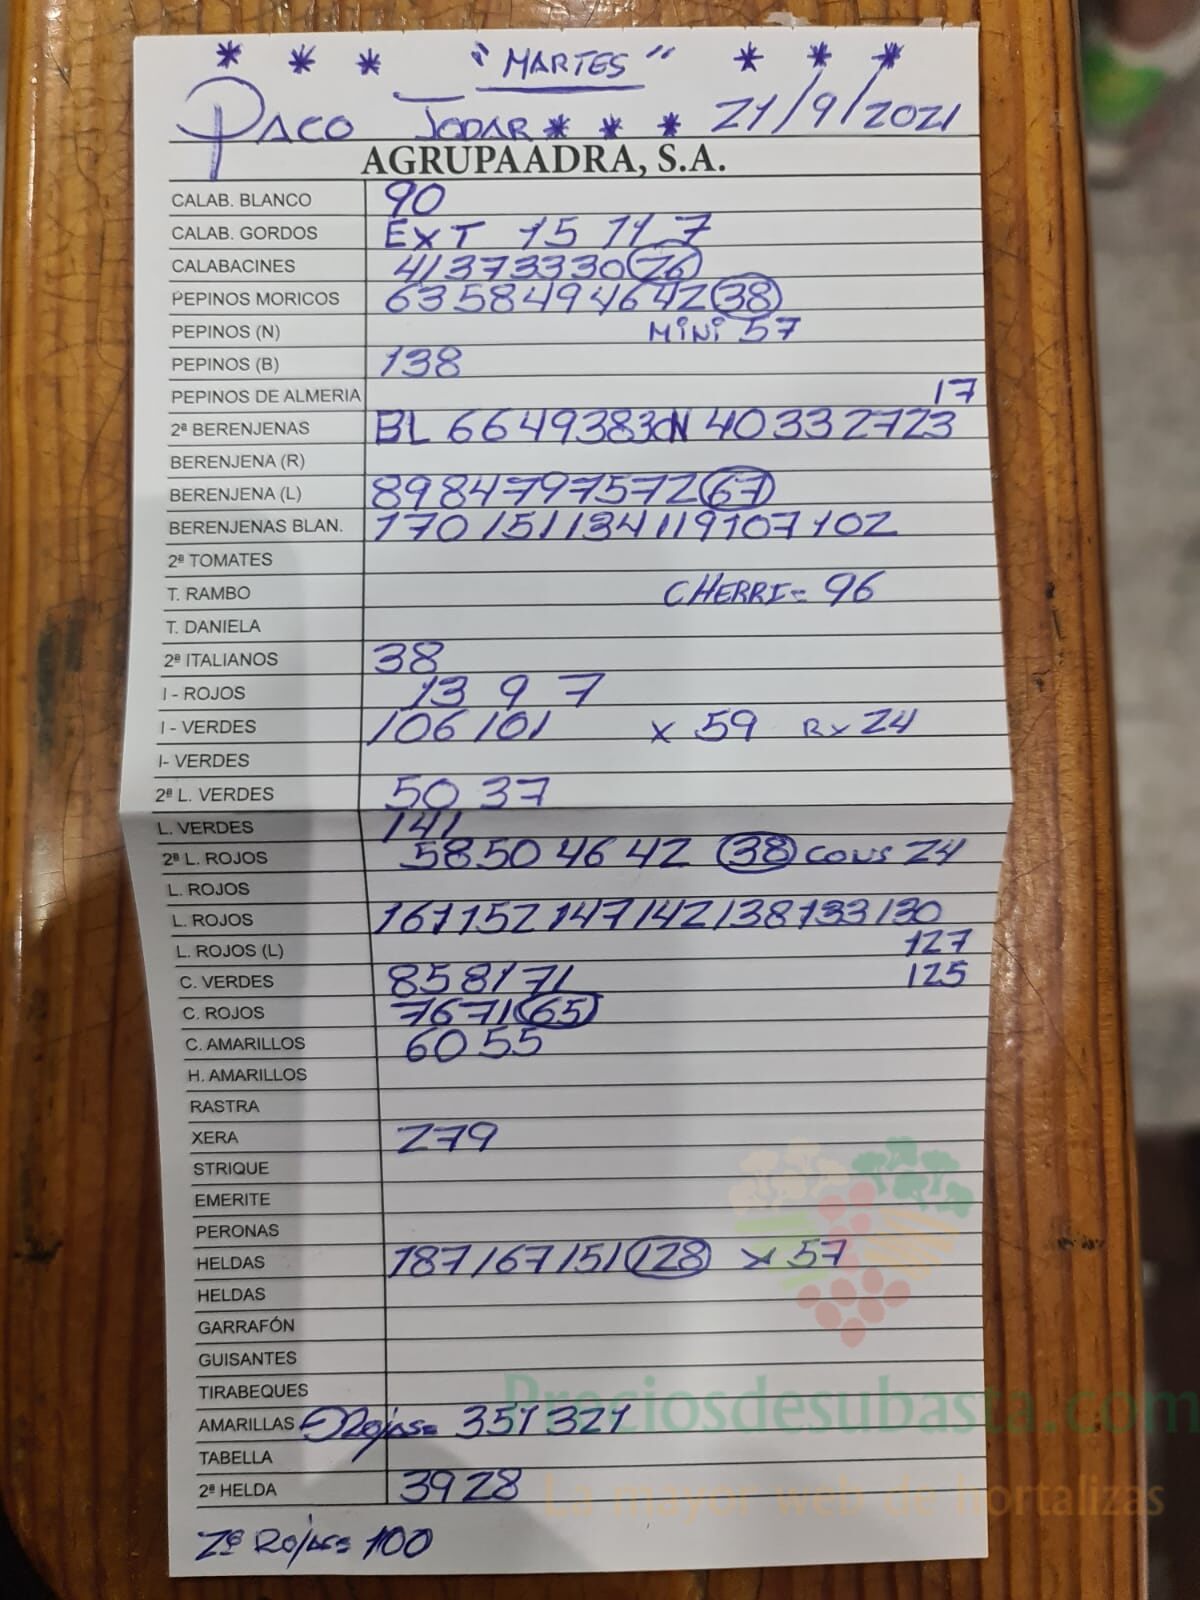 * * * "MARTES" * * *
PACO JODAR * * * 21/9/2021
AGRUPAADRA, S.A.
CALAB. BLANCO 90
CALAB. GORDOS EXT 15 11 7
CALABACINES 41 37 33 30 26
PEPINOS MORICOS 63 58 49 46 42 38
PEPINOS (N) MINI 57
PEPINOS (B) 138
PEPINOS DE ALMERIA 17
2ª BERENJENAS BL 66 49 38 30 N 40 33 27 23
BERENJENA (R)
BERENJENA (L) 89 84 79 75 72 67
BERENJENAS BLAN. 170 151 134 119 107 102
2ª TOMATES
T. RAMBO CHERRI= 96
T. DANIELA
2ª ITALIANOS 38
I - ROJOS 13 9 7
I - VERDES 106 101 x 59 Rx 24
I- VERDES
2ª L. VERDES 50 37
L. VERDES 141
2ª L. ROJOS 58 50 46 42 38 CONS 24
L. ROJOS
L. ROJOS 167 152 147 142 138 133 130
L. ROJOS (L) 127
C. VERDES 85 81 71 125
C. ROJOS 76 71 65
C. AMARILLOS 60 55
H. AMARILLOS
RASTRA
XERA 279
STRIQUE
EMERITE
PERONAS
HELDAS 187 167 151 128 x 57
HELDAS
GARRAFÓN
GUISANTES
TIRABEQUES
AMARILLAS Rojas= 351 321
TABELLA
2ª HELDA 39 28
2ª Rojas= 100
Preciosdesubasta.com
La mayor web de hortalizas